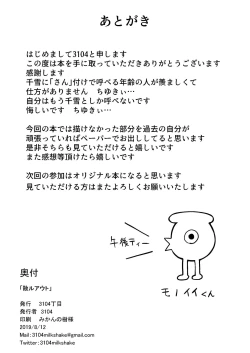 あとがき
はじめまして3104と申します
この度は本を手に取っていただきありがとうございます
感謝します
千雪に「さん」付けで呼べる年齢の人が羨ましくて
仕方がありません　ちゆきぃ…
自分はもう千雪としか呼べないです
悔しいです　ちゆきぃ…
今回の本では描けなかった部分を過去の自分が
残っていればペーパーでお出ししてると思います
是非そちらも見ていただけると嬉しいです
また感想等頂けたら嬉しいです
次回の参加はオリジナル本になると思います
見ていただける方はまたよろしくお願いいたします
モノイイくん
奥付
「融ルアウト」
発行　3104丁目
発行者　3104
印刷　みかんの樹様
2019/8/12
Mail：3104milkshake@gmail.com
Twitter：3104milkshake